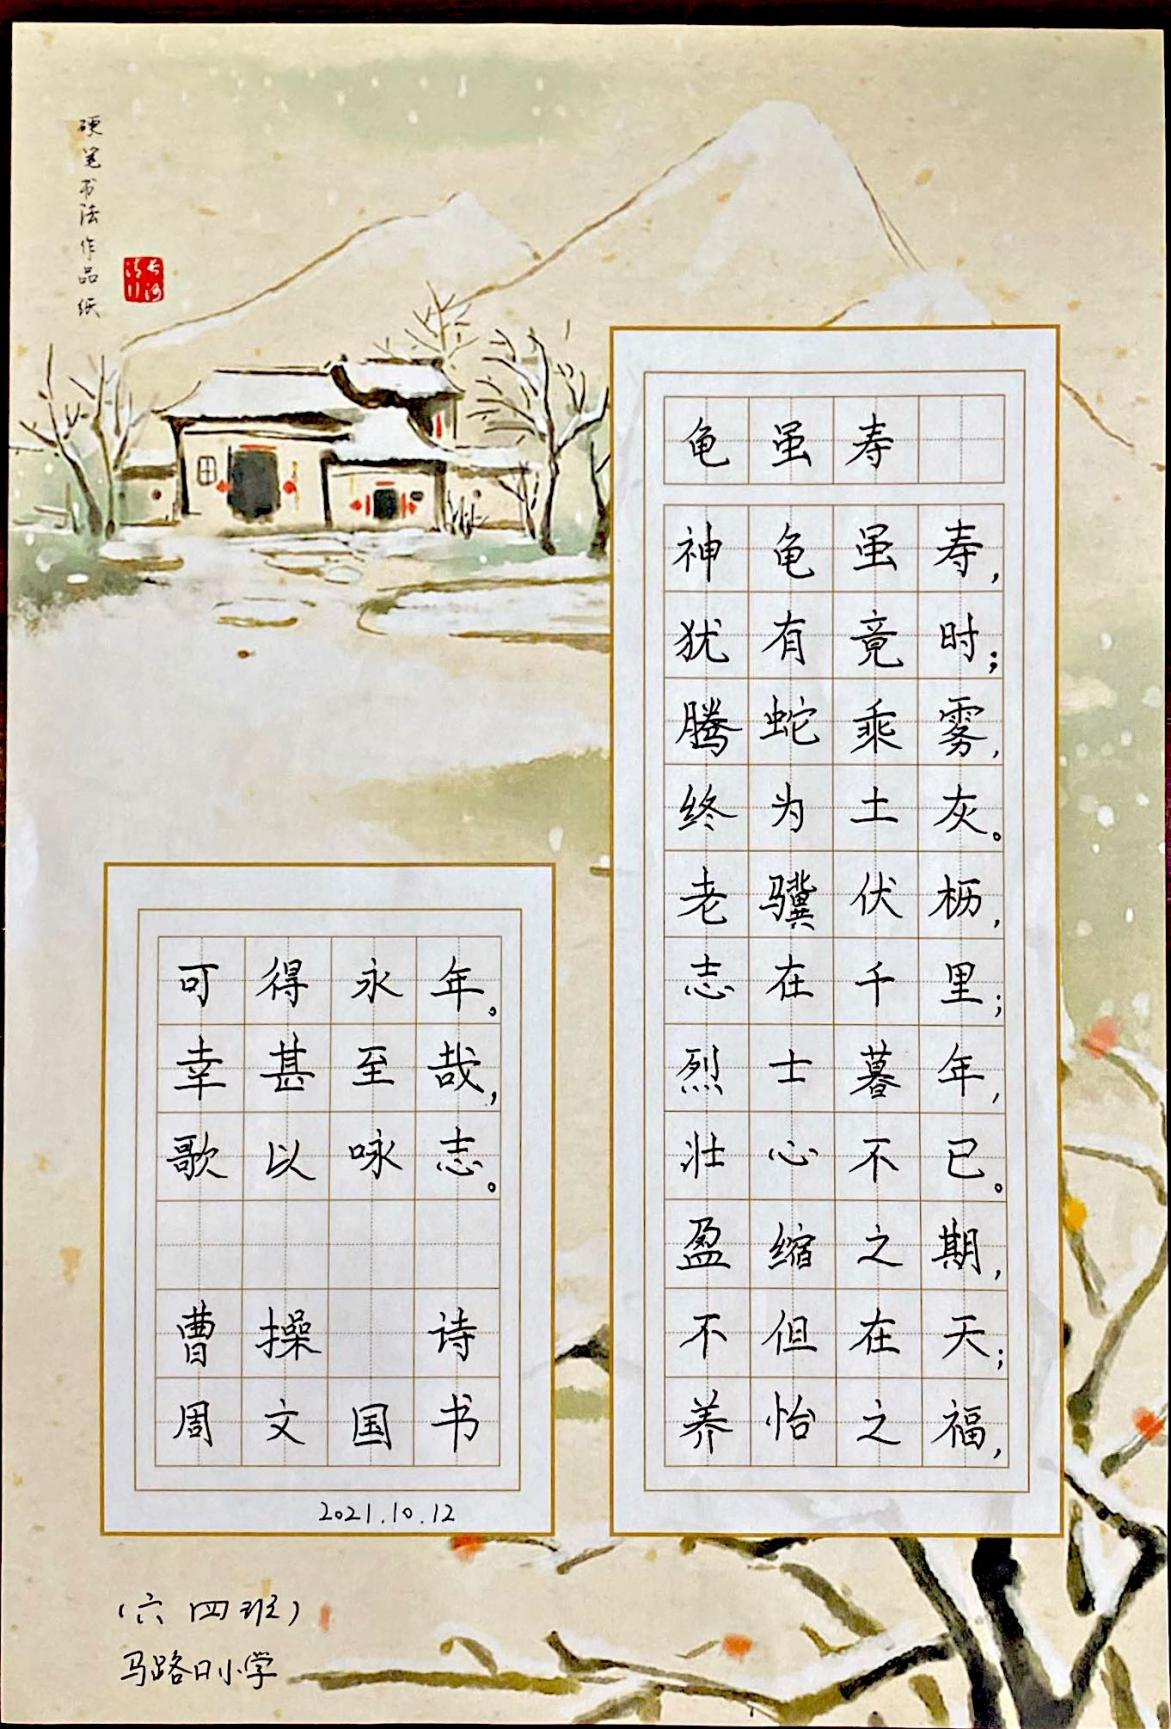 硬笔书法作品纸
龟虽寿
神龟虽寿,
犹有竟时;
腾蛇乘雾,
终为土灰。
老骥伏枥,
志在千里;
烈士暮年,
壮心不已。
盈缩之期,
不但在天;
养怡之福,
可得永年。
幸甚至哉,
歌以咏志。
曹操 诗
周文国书
2021.10.12
(六四班)
马路口小学